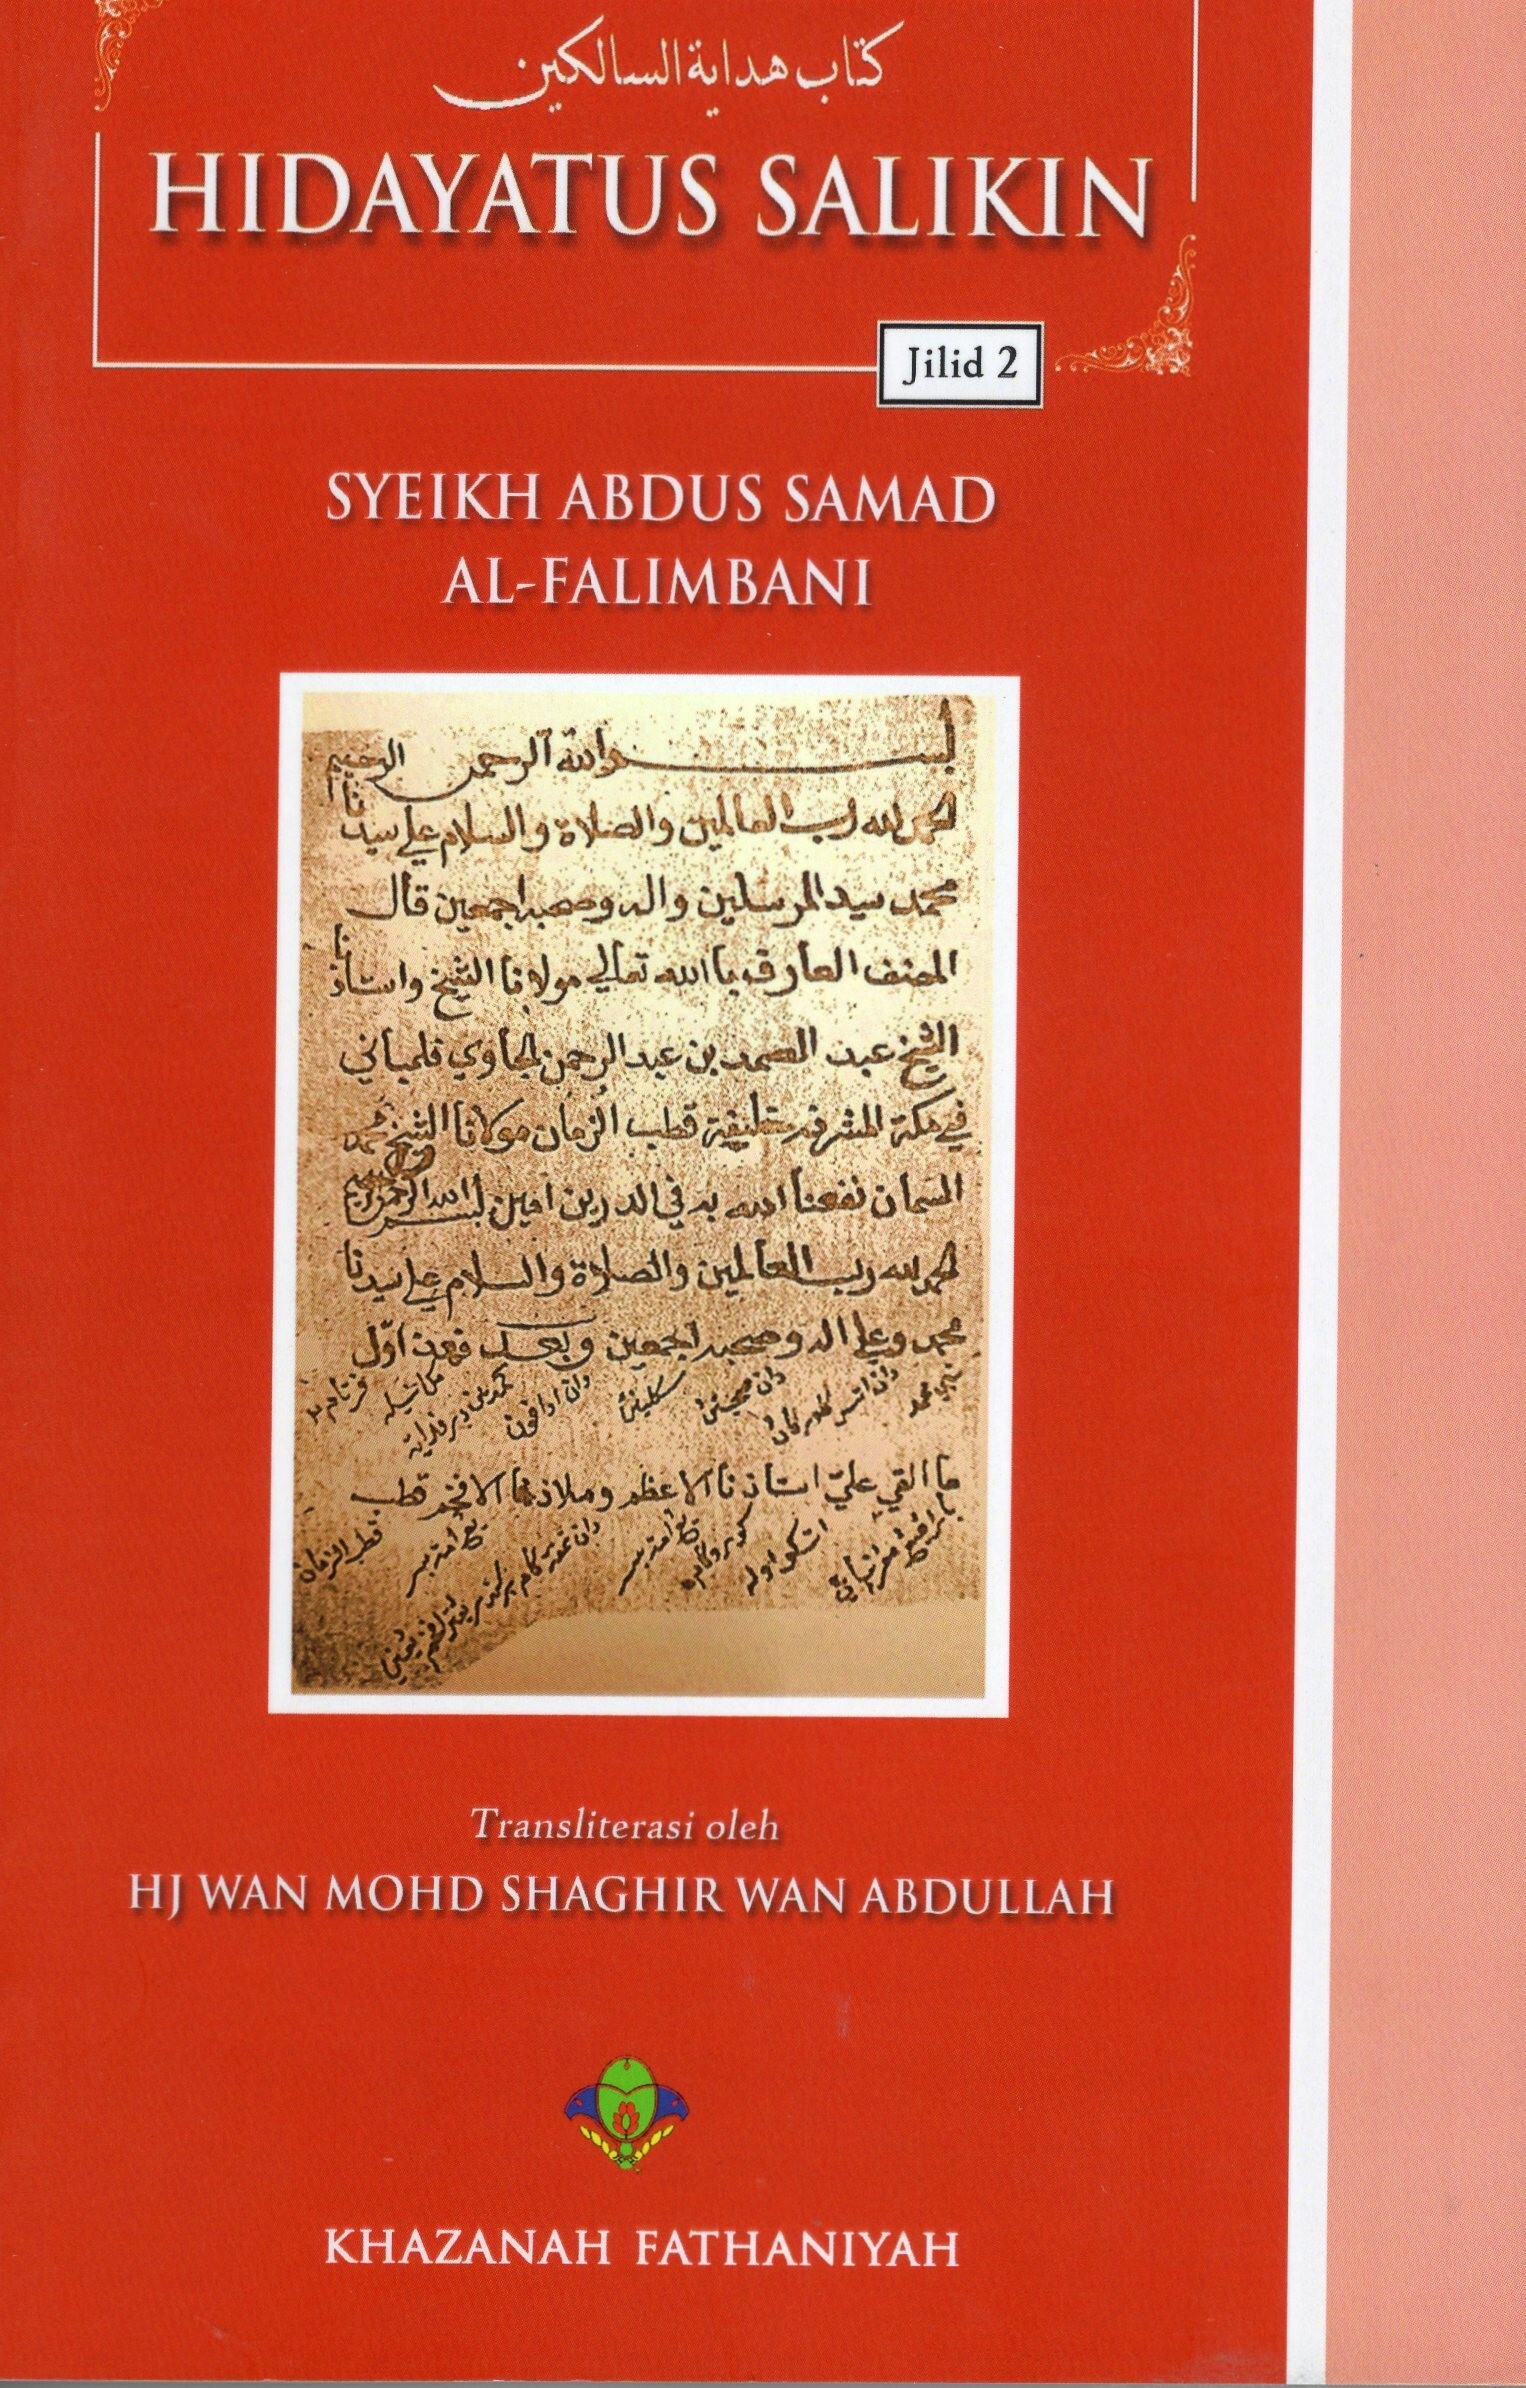 كتاب هداية السالكين
HIDAYATUS SALIKIN
Jilid 2
SYEIKH ABDUS SAMAD
AL-FALIMBANI
بسم الله الرحمن الرحيم
الحمد لله رب العالمين والصلاة والسلام علي سيدنا
محمد سيد المرسلين واله وصحبه اجمعين قال
المصنف العارف باالله تعالي مولانا الشيخ واستاذنا
الشيخ عبد الصمد بن عبد الرحمن الجاوي فلمباني
في مكة المشرفة قطب الزمان مولانا الشيخ محمد
السمان نفعنا الله به في الدارين امين بسم الله الرحمن الرحيم
الحمد لله رب العالمين والصلاة والسلام علي سيدنا
محمد وعلي اله وصحبه اجمعين وبعد فهذا اوّل
ما القي عليّ استاذنا الاعظم وملاذنا الافخم قطب
Transliterasi oleh
HJ WAN MOHD SHAGHIR WAN ABDULLAH
KHAZANAH FATHANIYAH